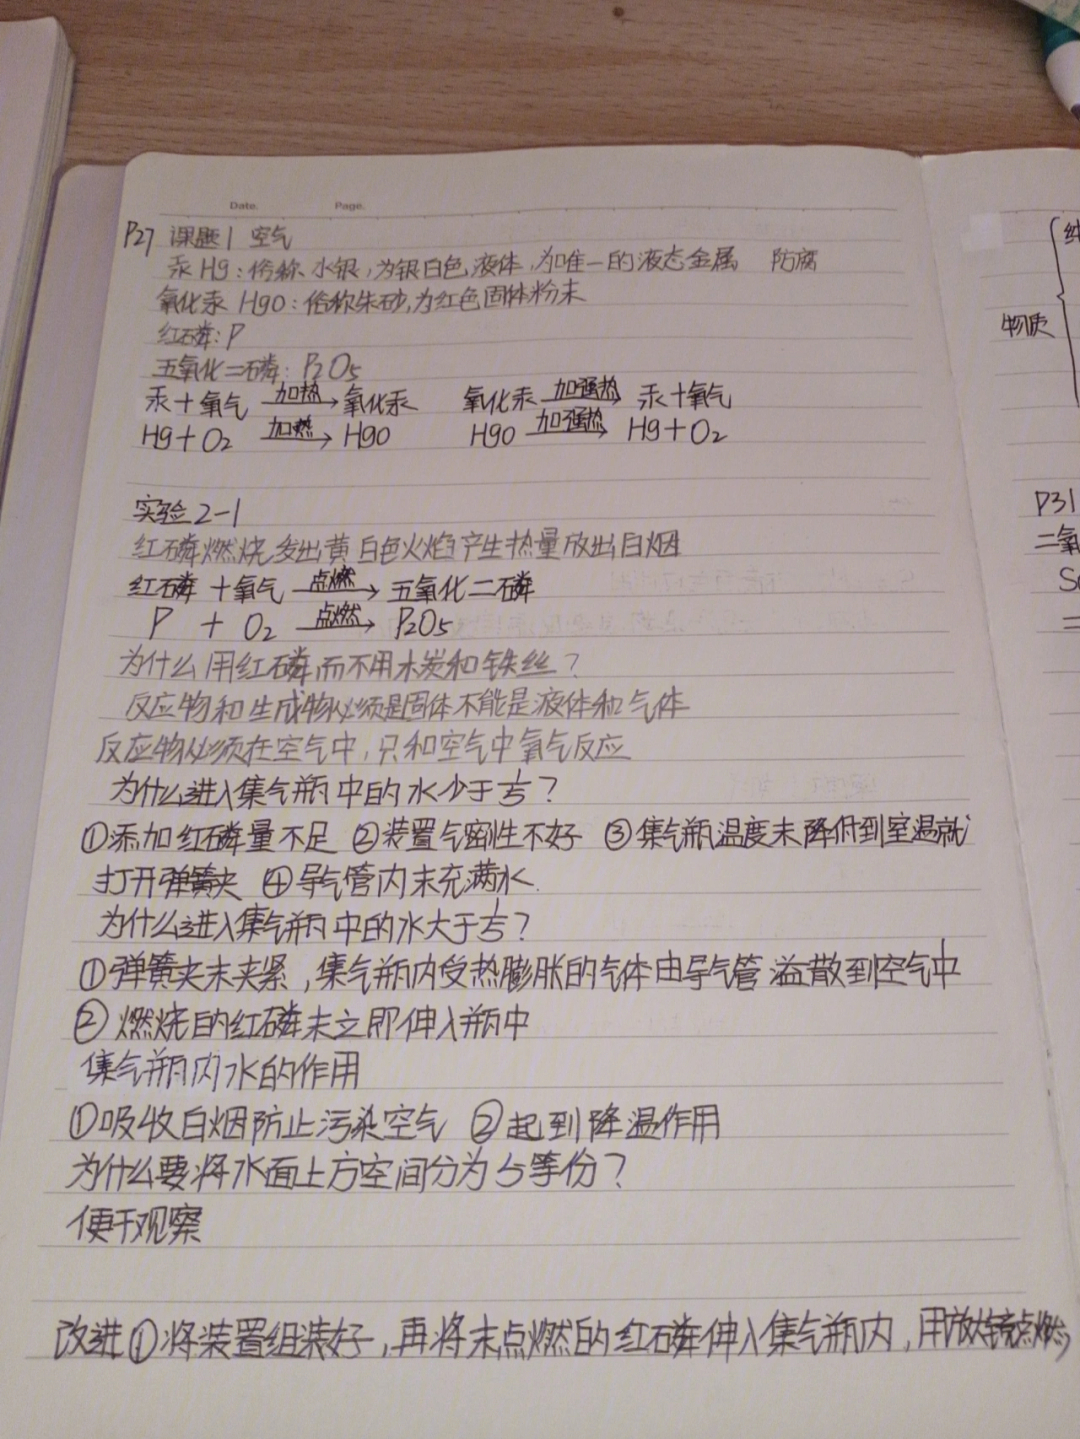 Date. Page.
P27 课题1 空气
汞 Hg：俗称水银，为银白色液体，为唯一的液态金属 防腐
氧化汞 HgO：俗称朱砂，为红色固体粉末
红磷：P
五氧化二磷：P₂O₅
汞＋氧气 加热→ 氧化汞 氧化汞 加强热→ 汞＋氧气
Hg＋O₂ 加热→ HgO HgO 加强热→ Hg＋O₂
实验2-1
红磷燃烧发出黄白色火焰产生热量放出白烟
红磷＋氧气 点燃→ 五氧化二磷
P ＋ O₂ 点燃→ P₂O₅
为什么用红磷而不用木炭和铁丝？
反应物和生成物必须是固体不能是液体和气体
反应物必须在空气中，只和空气中氧气反应
为什么进入集气瓶中的水少于1/5？
①添加红磷量不足 ②装置气密性不好 ③集气瓶温度未降低到室温就
打开弹簧夹 ④导气管内未充满水.
为什么进入集气瓶中的水大于1/5？
①弹簧夹未夹紧，集气瓶内受热膨胀的气体由导气管溢散到空气中
②燃烧的红磷未立即伸入瓶中
集气瓶内水的作用
①吸收白烟防止污染空气 ②起到降温作用
为什么要将水面上方空间分为5等份？
便于观察
改进①将装置组装好，再将未点燃的红磷伸入集气瓶内，用放大镜点燃，
物质
P31
二氧
=